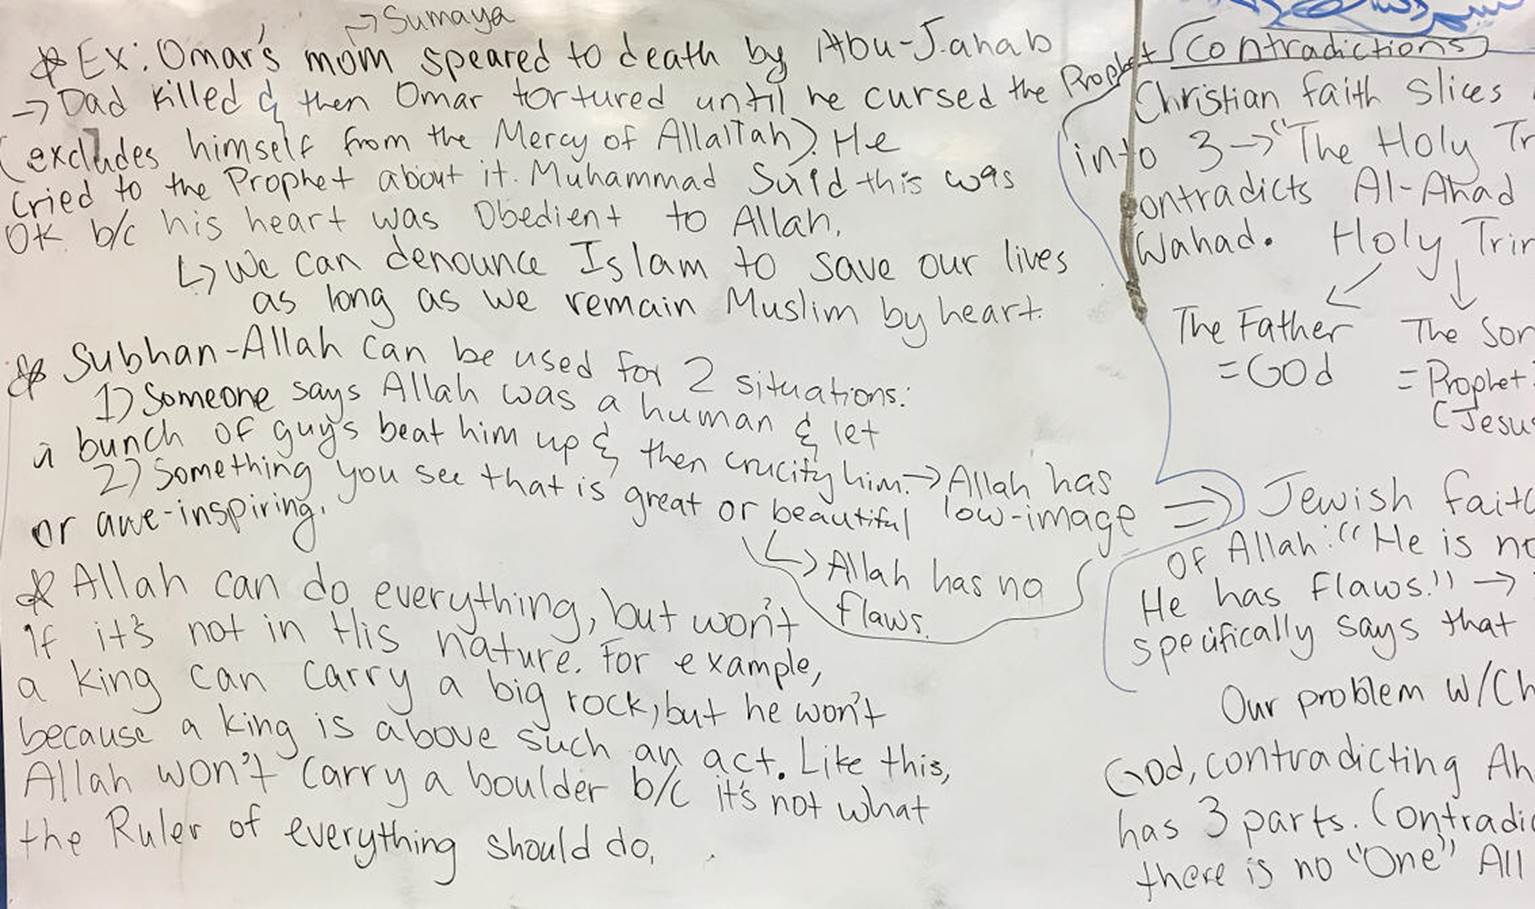 → Sumaya
* Ex: Omar's mom speared to death by Abu-Jahab
→ Dad killed & then Omar tortured until he cursed the Prophet
(excludes himself from the Mercy of Allallah). He
cried to the Prophet about it. Muhammad said this was
OK b/c his heart was Obedient to Allah.
↳ We can denounce Islam to save our lives
as long as we remain Muslim by heart.
* Subhan-Allah can be used for 2 situations:
1) Someone says Allah was a human & let
a bunch of guys beat him up & then crucify him. → Allah has
low-image
2) Something you see that is great or beautiful
or awe-inspiring.
↳ Allah has no
flaws.
* Allah can do everything, but won't
if it's not in His nature. For example,
a king can carry a big rock, but he won't
because a king is above such an act. Like this,
Allah won't carry a boulder b/c it's not what
the Ruler of everything should do.
Contradictions
Christian faith slices
into 3 → "The Holy Tr
ontradicts Al-Ahad
Wahad. Holy Trin
The Father The Son
= God = Prophet
(Jesus
⇒ Jewish faith
of Allah: "He is no
He has flaws." →
specifically says that
Our problem w/Ch
God, contradicting Ah
has 3 parts. Contradic
there is no "One" All